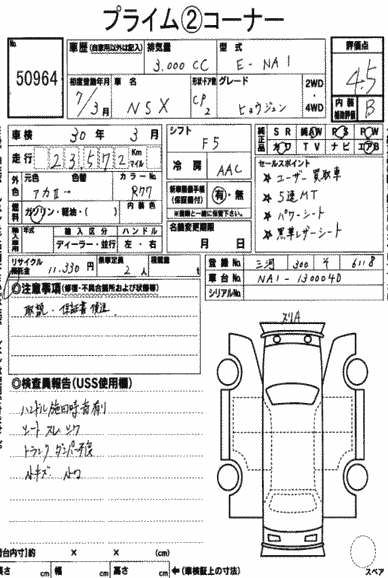 プライム②コーナー
No. 50964
車歴 (自家用以外は記入) 排気量 3.000 CC 型式 E-NA1 評価点 4.5
初度登録年月 7/3月 車名 NSX 形状・ドア数 CP 2 グレード 2WD・4WD 内装補助評価 B
車検 30年 3月 シフト F5 純正品 SR AW PS PW
カワ TV ナビ エアB
走行 23572 Km マイル 冷房 AAC
セールスポイント
外色 元色 アカⅡ→ 色替 カラーNo. R77 新車整備手帳(保証書付) 有・無
※譲渡書と一緒に保管下さい。
☆ ユーザー買取車
☆ 5速MT
☆ パワーシート
☆ 黒革レザーシート
燃料 ガソリン・軽油・( ) 内装色
輸入車用 年式 輸入区分 ハンドル 名義変更期限
ディーラー・並行 左・右 月 日
リサイクル預託金 11.330円 乗車定員 2人 積載量 t
登録No. 三河 300 そ 6118
車台No. NA1-1300040
シリアルNo.
◎注意事項(修復・不具合箇所および状態等)
取説・保証書後送
スリA
◎検査員報告(USS使用欄)
ハンドル施回時音有り
シート スレ シワ
トランク ダンパー不良
小キズ
荷台内寸)約 × × (cm)
長さ cm 幅 cm 高さ cm ←(車検証上の寸法)
スペア